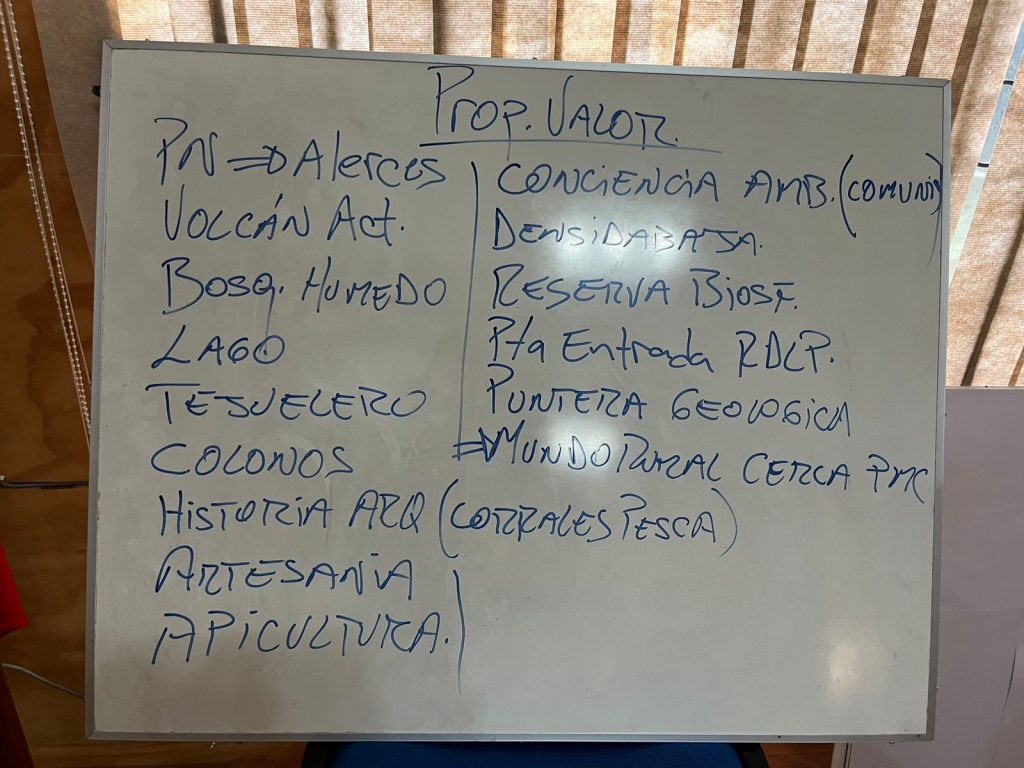 PROP. VALOR.
PN => Alerces
VOLCÁN Act.
BOSQ. HUMEDO
LAGO
TEJUELERO
COLONOS
HISTORIA ARQ (CORRALES PESCA)
ARTESANIA
APICULTURA.
CONCIENCIA AMB. (COMUNI)
DENSIDABAJA.
RESERVA BIOSF.
Pta Entrada RDLP.
PUNTERA GEOLOGICA
=> MUNDO RURAL CERCA PMC